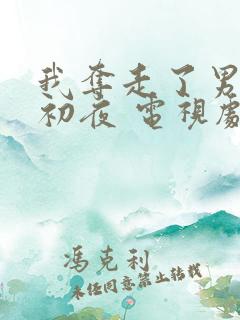 我奪走了男
初夜 電視劇
馮克利
未經同意禁止轉載